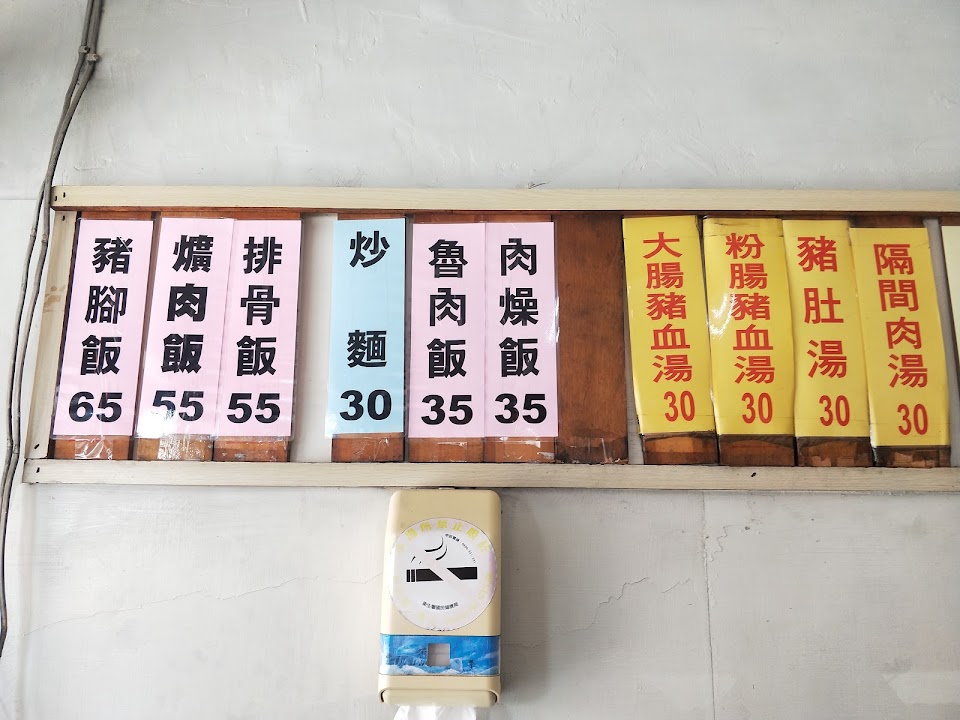 豬腳飯 65
爌肉飯 55
排骨飯 55
炒麵 30
魯肉飯 35
肉燥飯 35
大腸豬血湯 30
粉腸豬血湯 30
豬肚湯 30
隔間肉湯 30